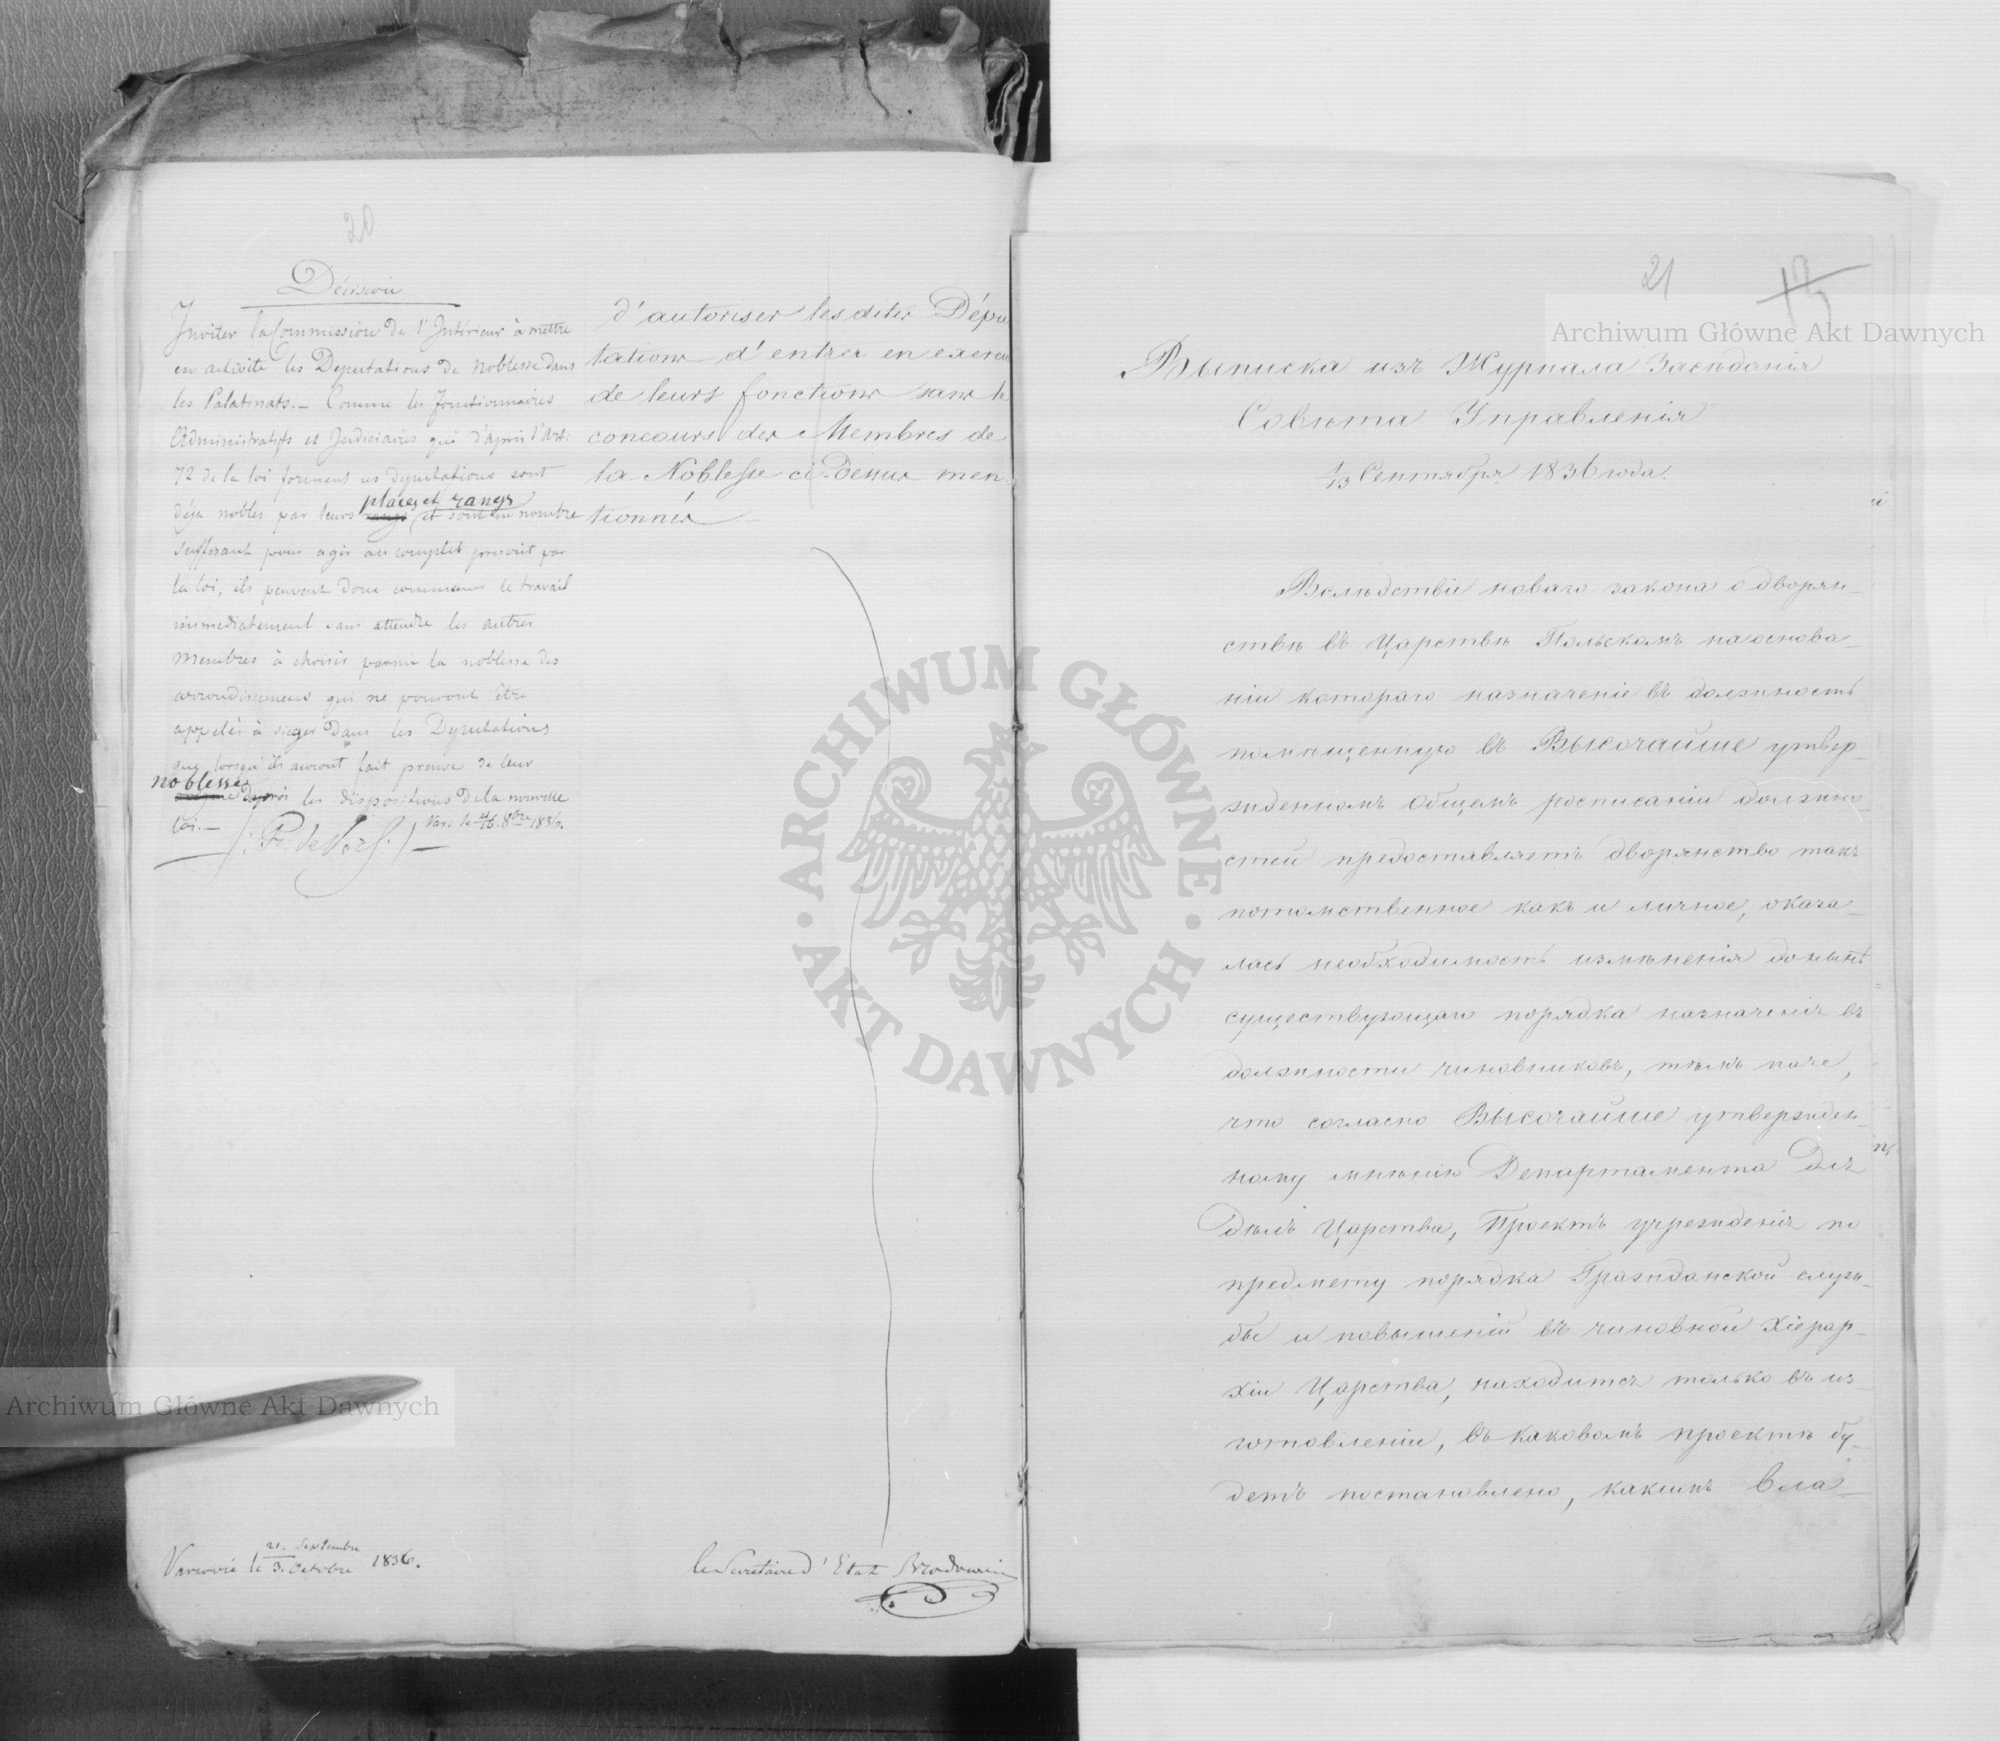 20
Décision
Inviter la Commission de l'Intérieur à mettre
en activité les Députations de Noblesse dans
les Palatinats. — Comme les fonctionnaires
Administratifs et Judiciaires qui d'après l'Art:
72 de la loi forment ces députations sont
places et rangs
déja nobles par leurs rangs et sont en nombre
suffisant pour agir au complet prescrit par
la loi, ils peuvent donc commencer le travail
immédiatement sans attendre les autres
membres à choisir parmi la noblesse des
arrondissemens qui ne pourront être
appelés à sieger dans les Députations
que lorsqu'ils auront fait preuve de leur
noblesse
d'après les dispositions de la nouvelle
loi. —
Vars. le 4/16 8bre 1836.
d'autoriser les dites Dépu
tations d'entrer en exercice
de leurs fonctions sans le
concours des Membres de
la Noblesse ci-dessus men-
tionnés —
Varsovie le 21. Septembre / 3. Octobre 1836.
le Secrétaire d'Etat
21
Archiwum Główne Akt Dawnych
Выписка изъ Журнала Засѣданія
Совѣта Управленія
1/13 Сентября 1836 года.
Вслѣдствіи новаго закона о дворян-
ствѣ въ Царствѣ Польскомъ на основа-
ніи котораго назначеніе въ должность
помѣщенную въ Высочайше утвер-
жденномъ общемъ росписаніи должно-
стей предоставляетъ дворянство такъ
потомственное какъ и личное, оказа-
лась необходимость измѣненія донынѣ
существующаго порядка назначенія въ
должности чиновниковъ, тѣмъ паче,
что согласно Высочайше утвержден-
ному мнѣнію Департамента Дѣлъ
Царства, Проектъ учрежденія по
предмету порядка Гражданской служ-
бы и повышеній въ чиновной Хіерар-
хіи Царства, находится только въ из-
готовленіи, въ каковомъ проектѣ бу-
детъ постановлено, какимъ вла-
ARCHIWUM GŁÓWNE · AKT DAWNYCH ·
Archiwum Główne Akt Dawnych